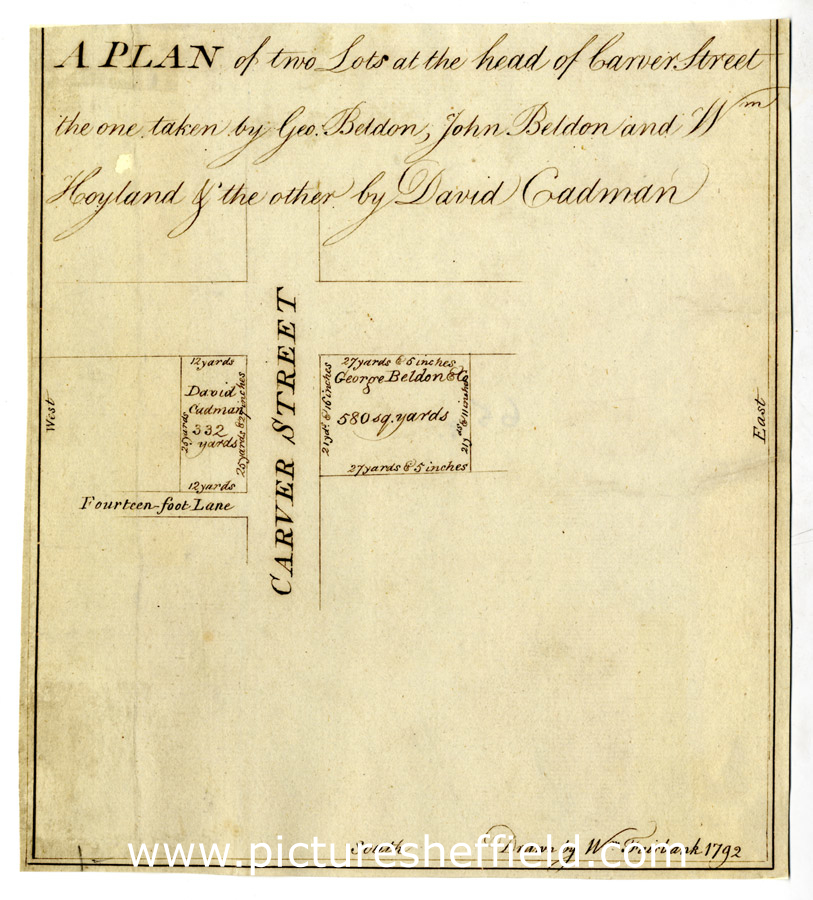 A PLAN of two Lots at the head of Carver Street
the one taken by Geo. Beldon, John Beldon and Wm
Hoyland & the other by David Cadman
CARVER STREET
West
12 yards
David
Cadman
332
yards
25 yards
12 yards
Fourteen-foot Lane
27 yards & 5 inches
George Beldon & Co
580 sq. yards
21 yds & 16 inches
21 yds & 11 inches
27 yards & 5 inches
East
South
Drawn by Wm Fairbank 1792
www.picturesheffield.com